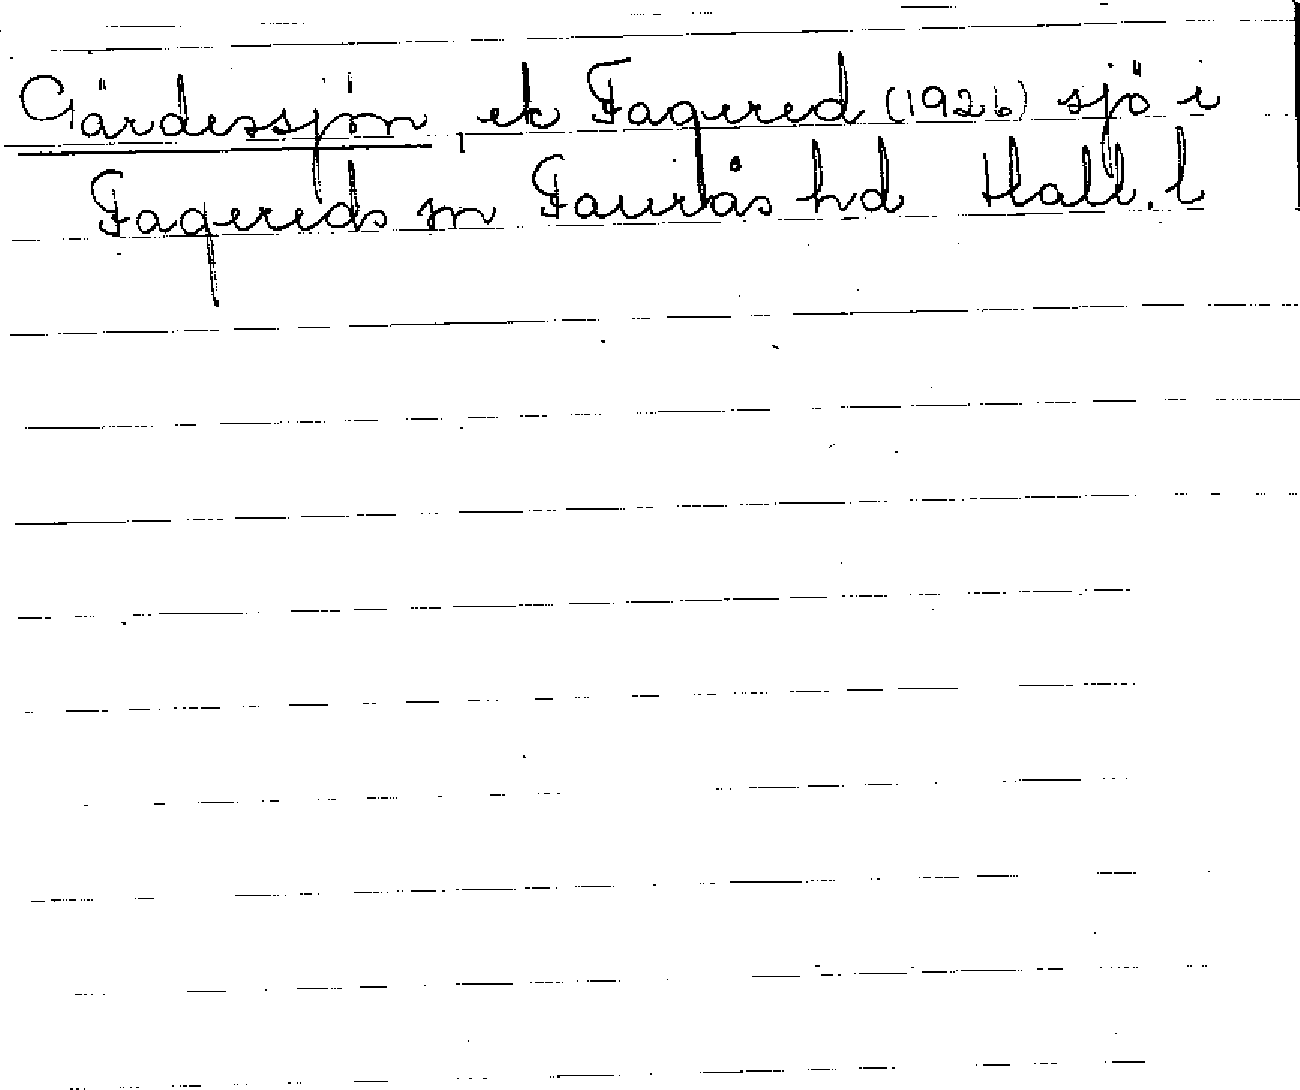 Gärdessjön, ek Fagered (1926) sjö i
Fagereds sn Faurås hd Hall. l